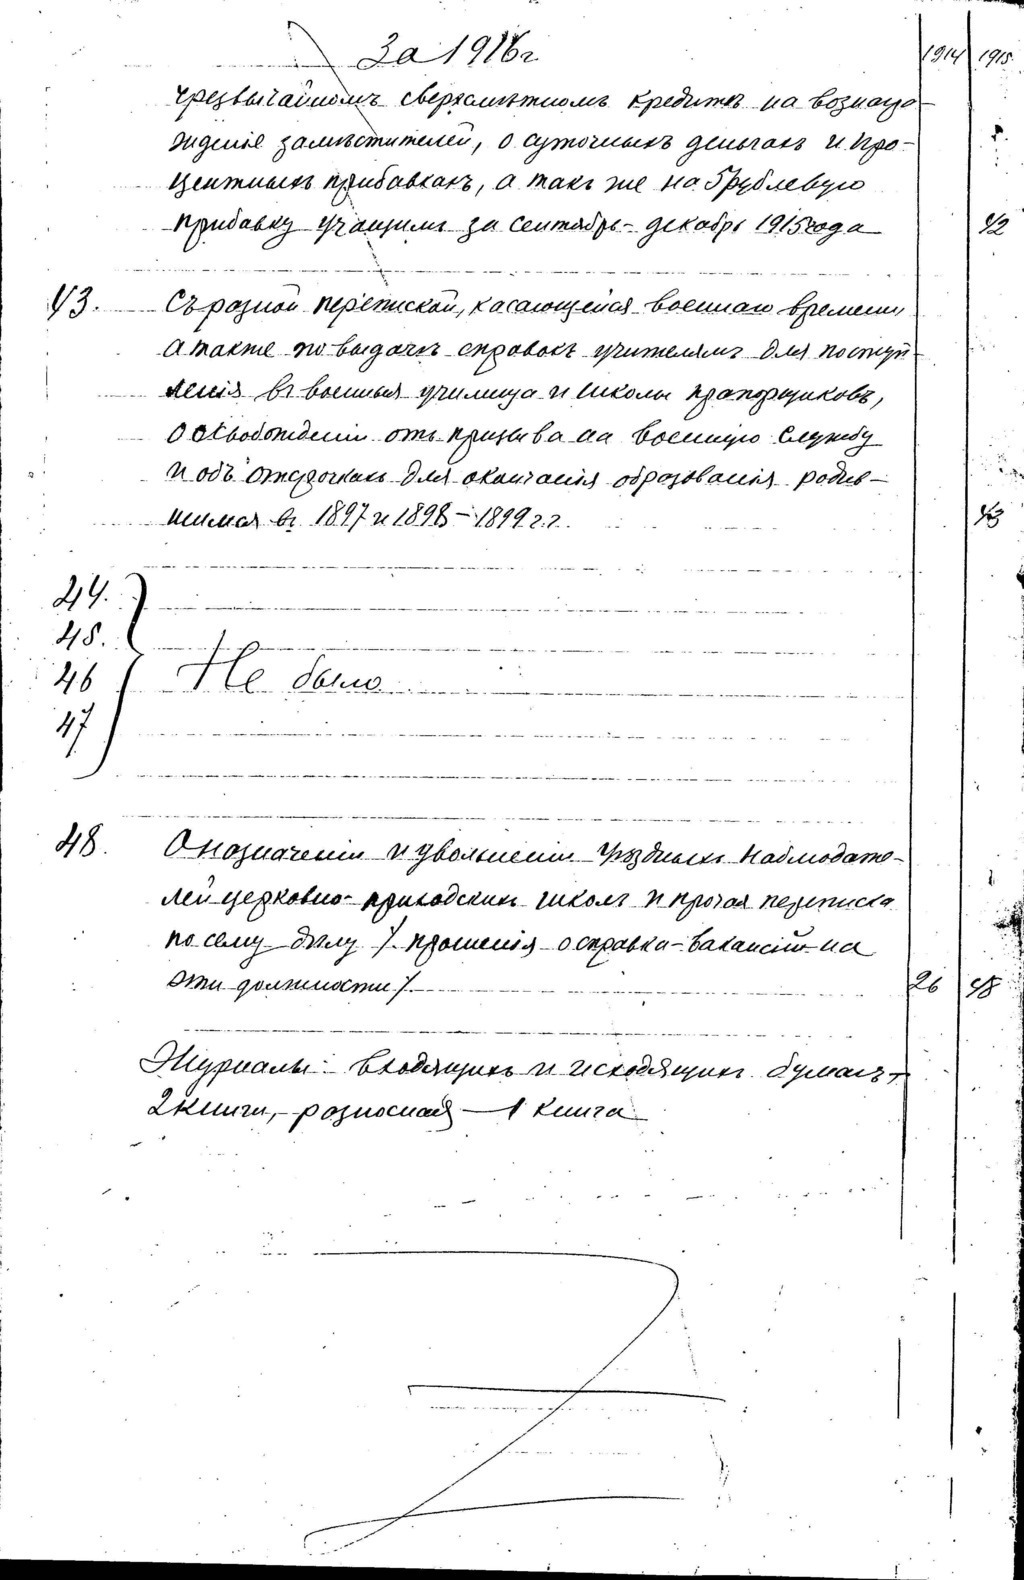 За 1916 г
1914 1915
чрезвычайномъ сверхсмѣтномъ кредитѣ на вознагра-
жденіе замѣстителей, о суточныхъ деньгахъ и про-
центныхъ прибавкахъ, а такъ же на 5 рублевую
прибавку учащимъ за сентябрь-декабрь 1915 года 42
43. Съ разной перепиской, касающейся военнаго времени
а также по выдачѣ справокъ учителямъ для поступ-
ленія въ военныя училища и школы прапорщиковъ,
о освобожденіи отъ призыва на военную службу
и объ отсрочкахъ для окончанія образованія родив-
шимся въ 1897 и 1898-1899 г.г. 43
44.
45.
46 Не было
47
48. О назначеніи и увольненіи уѣздныхъ наблюдате-
лей церковно-приходскихъ школъ и прочая переписка
по сему дѣлу /. прошенія о справка-вакансіи на
эти должности /. 26 48
Журналы: входящихъ и исходящихъ бумагъ-
2 книги, - разносная - 1 книга